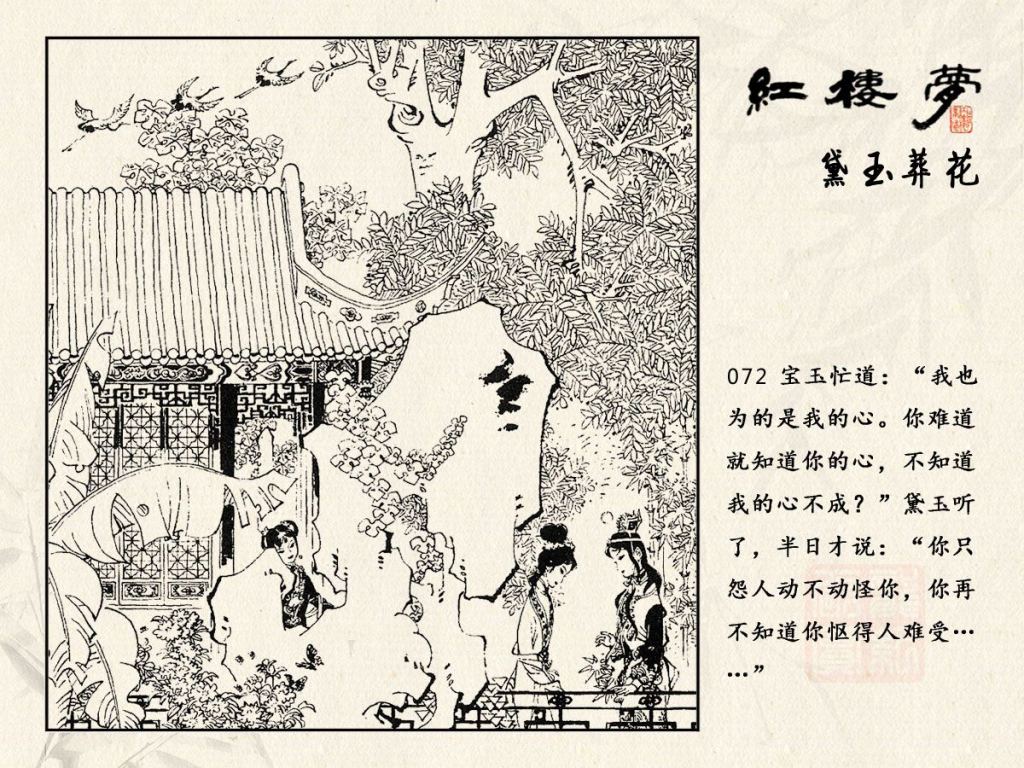 紅樓夢
黛玉葬花
072 宝玉忙道：“我也
为的是我的心。你难道
就知道你的心，不知道
我的心不成？”黛玉听
了，半日才说：“你只
怨人动不动怪你，你再
不知道你怄得人难受…
…”